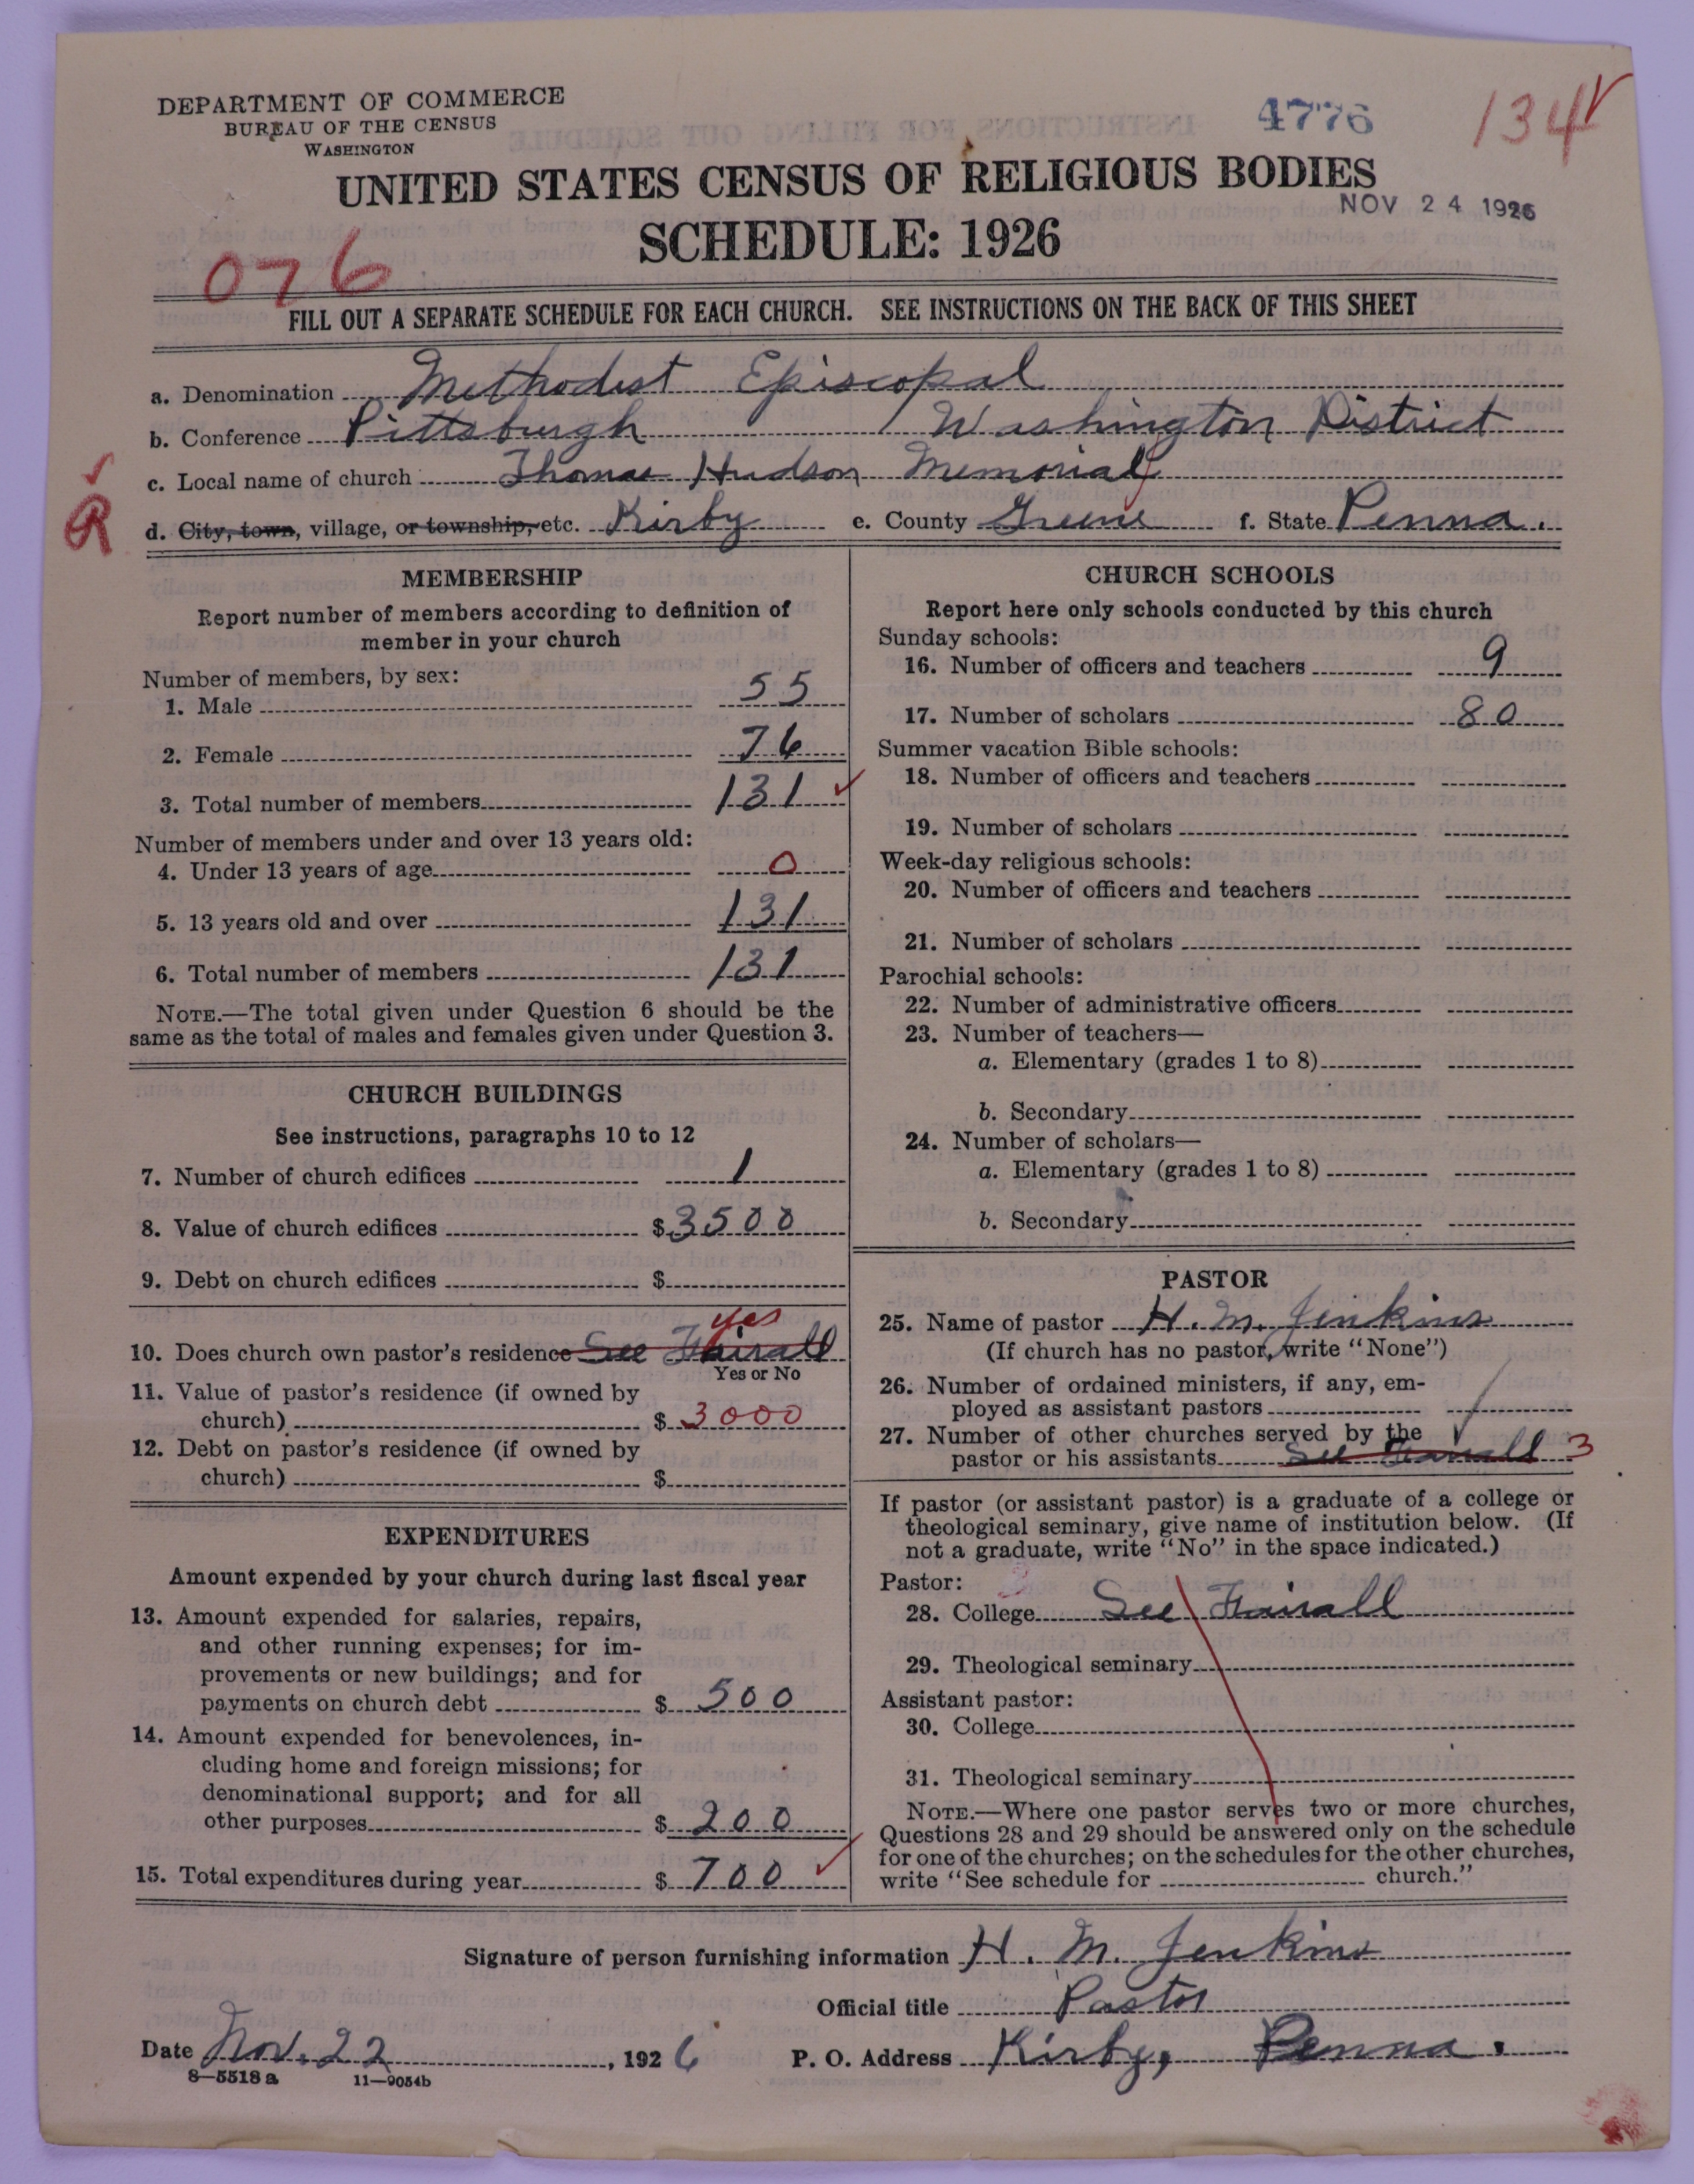 DEPARTMENT OF COMMERCE
BUREAU OF THE CENSUS
WASHINGTON
4776
134
UNITED STATES CENSUS OF RELIGIOUS BODIES
NOV 24 1926
SCHEDULE: 1926
076
FILL OUT A SEPARATE SCHEDULE FOR EACH CHURCH. SEE INSTRUCTIONS ON THE BACK OF THIS SHEET
a. Denomination Methodist Episcopal
b. Conference Pittsburgh Washington District
c. Local name of church Thomas Hudson Memorial
R
d. City, town, village, or township, etc. Kirby e. County Greene f. State Penna.
MEMBERSHIP
Report number of members according to definition of
member in your church
Number of members, by sex:
1. Male 55
2. Female 76
3. Total number of members 131
Number of members under and over 13 years old:
4. Under 13 years of age 0
5. 13 years old and over 131
6. Total number of members 131
NOTE.—The total given under Question 6 should be the
same as the total of males and females given under Question 3.
CHURCH BUILDINGS
See instructions, paragraphs 10 to 12
7. Number of church edifices 1
8. Value of church edifices $ 3500
9. Debt on church edifices $
yes
10. Does church own pastor's residence See Fairall
Yes or No
11. Value of pastor's residence (if owned by
church) $ 3000
12. Debt on pastor's residence (if owned by
church) $
EXPENDITURES
Amount expended by your church during last fiscal year
13. Amount expended for salaries, repairs,
and other running expenses; for im-
provements or new buildings; and for
payments on church debt $ 500
14. Amount expended for benevolences, in-
cluding home and foreign missions; for
denominational support; and for all
other purposes $ 200
15. Total expenditures during year $ 700
CHURCH SCHOOLS
Report here only schools conducted by this church
Sunday schools:
16. Number of officers and teachers 9
17. Number of scholars 80
Summer vacation Bible schools:
18. Number of officers and teachers
19. Number of scholars
Week-day religious schools:
20. Number of officers and teachers
21. Number of scholars
Parochial schools:
22. Number of administrative officers
23. Number of teachers—
a. Elementary (grades 1 to 8)
b. Secondary
24. Number of scholars—
a. Elementary (grades 1 to 8)
b. Secondary
PASTOR
25. Name of pastor H. M. Jenkins
(If church has no pastor, write "None")
26. Number of ordained ministers, if any, em-
ployed as assistant pastors
27. Number of other churches served by the
pastor or his assistants See Fairall 3
If pastor (or assistant pastor) is a graduate of a college or
theological seminary, give name of institution below. (If
not a graduate, write "No" in the space indicated.)
Pastor:
28. College See Fairall
29. Theological seminary
Assistant pastor:
30. College
31. Theological seminary
NOTE.—Where one pastor serves two or more churches,
Questions 28 and 29 should be answered only on the schedule
for one of the churches; on the schedules for the other churches,
write "See schedule for church."
Signature of person furnishing information H. M. Jenkins
Official title Pastor
Date Nov. 22, 1926 P. O. Address Kirby, Penna.
8—5518 a 11—9054b